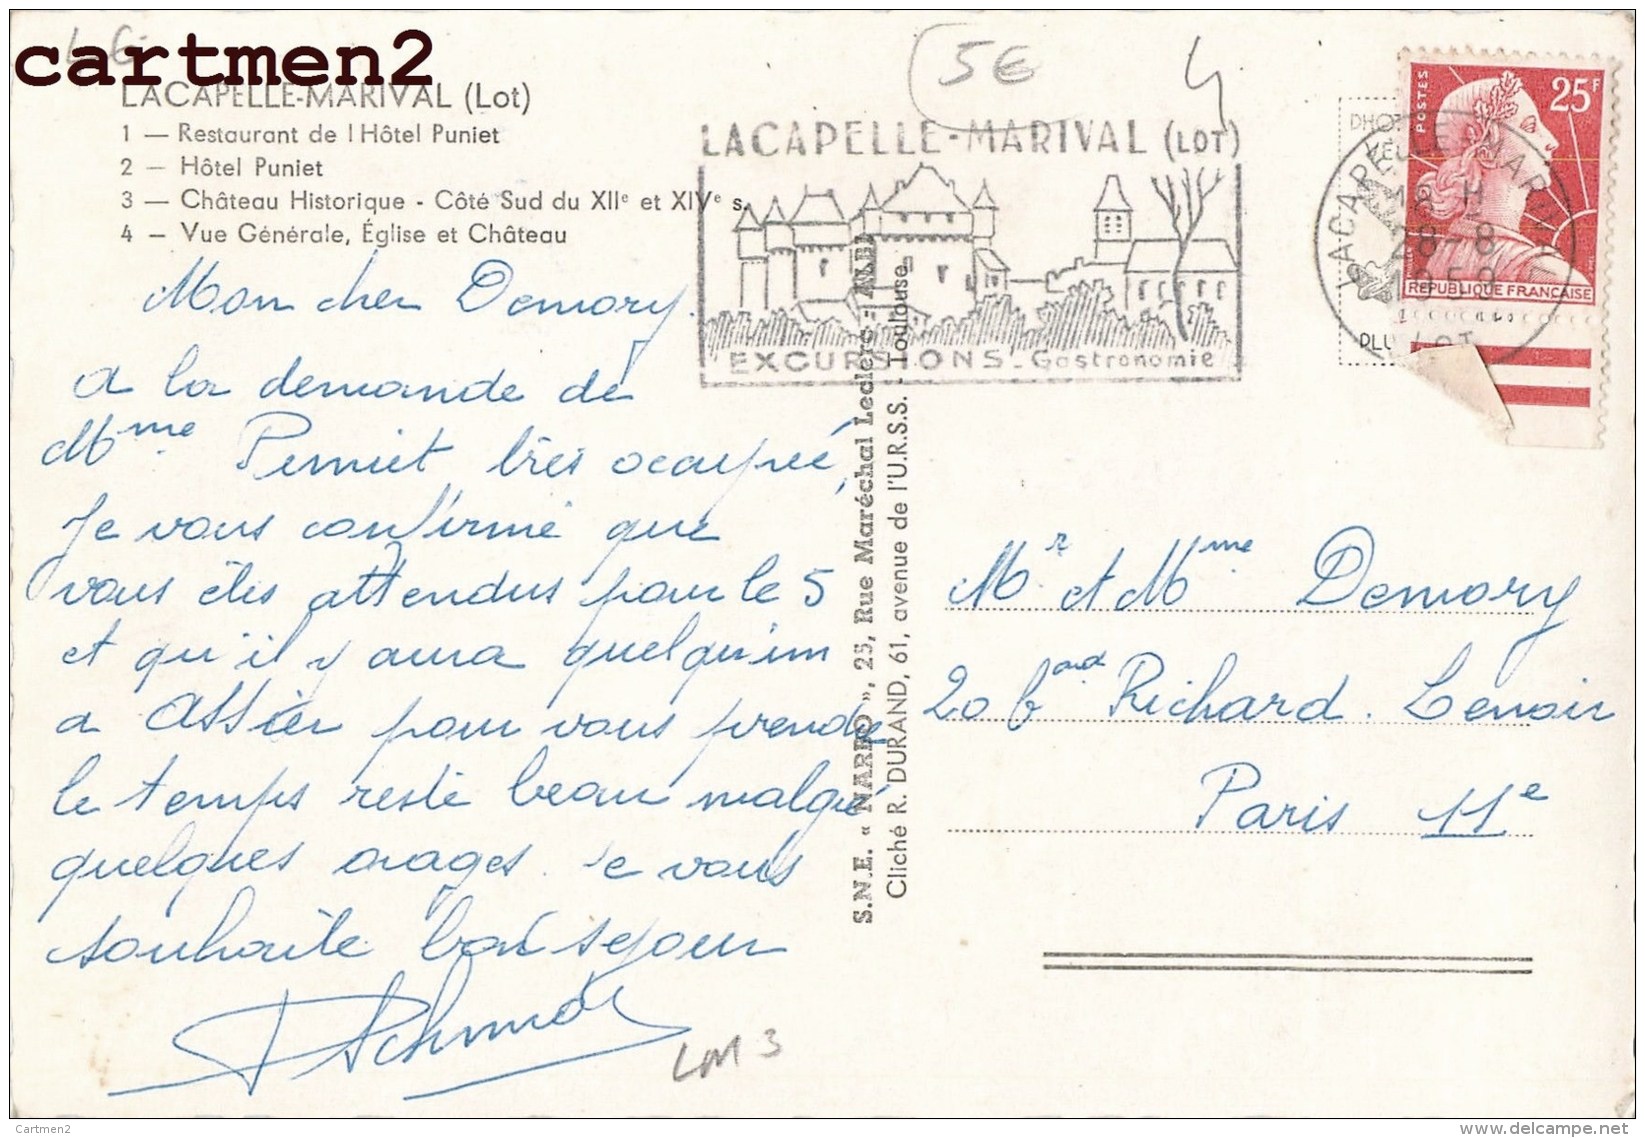 LG
cartmen2
LACAPELLE-MARIVAL (Lot)
1 — Restaurant de l Hôtel Puniet
2 — Hôtel Puniet
3 — Château Historique - Côté Sud du XIIe et XIVe s.
4 — Vue Générale, Église et Château
5€
4
LACAPELLE-MARIVAL (LOT)
EXCURSIONS - Gastronomie
LACAPELLE MARIVAL
18 H
28-8
LOT
POSTES
25F
REPUBLIQUE FRANÇAISE
Mon cher Demory.
a la demande de
Mme Puniet très occupée,
je vous confirme que
vous êtes attendus pour le 5
et qu'il y aura quelqu'un
a Assier pour vous prendre
le temps reste beau malgré
quelques orages. Je vous
souhaite bon séjour
LM 3
S.N.E. « NARBO », 25, Rue Maréchal Leclerc - ALBI
Cliché R. DURAND, 61, avenue de l'U.R.S.S. - Toulouse
Mr et Mme Demory
20 bard Richard. Lenoir
Paris 11e
Cartmen2
www.delcampe.net